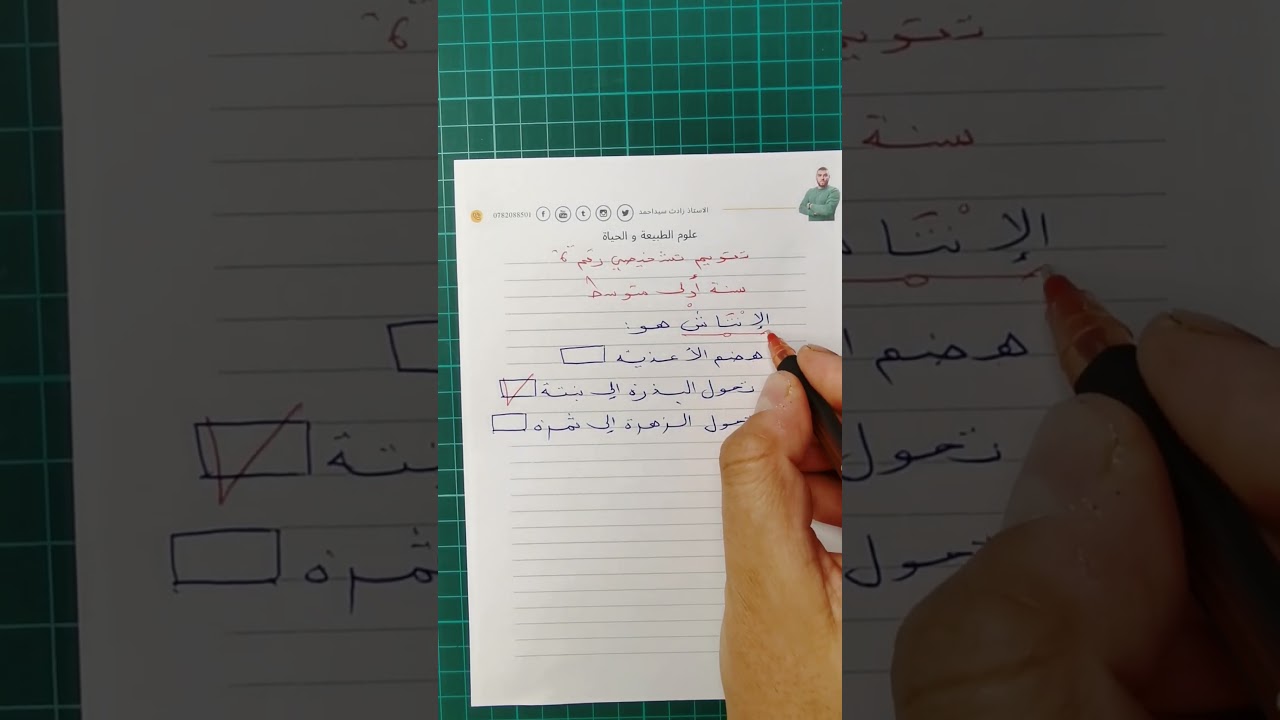 الاستاذ زادت سيداحمد 0782088501
علوم الطبيعة و الحياة
تقويم تشخيصي رقم "6"
سنة أولى متوسط
الإِنْتَاشْ هو:
هضم الأغذية
تحول البذرة إلى نبتة
تحول الزهرة إلى ثمرة